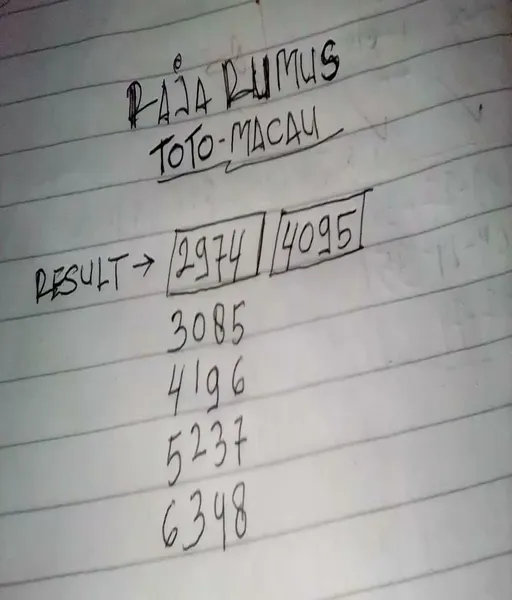 RAJA RUMUS
TOTO-MACAU
RESULT → 2974 4095
3085
4196
5237
6348